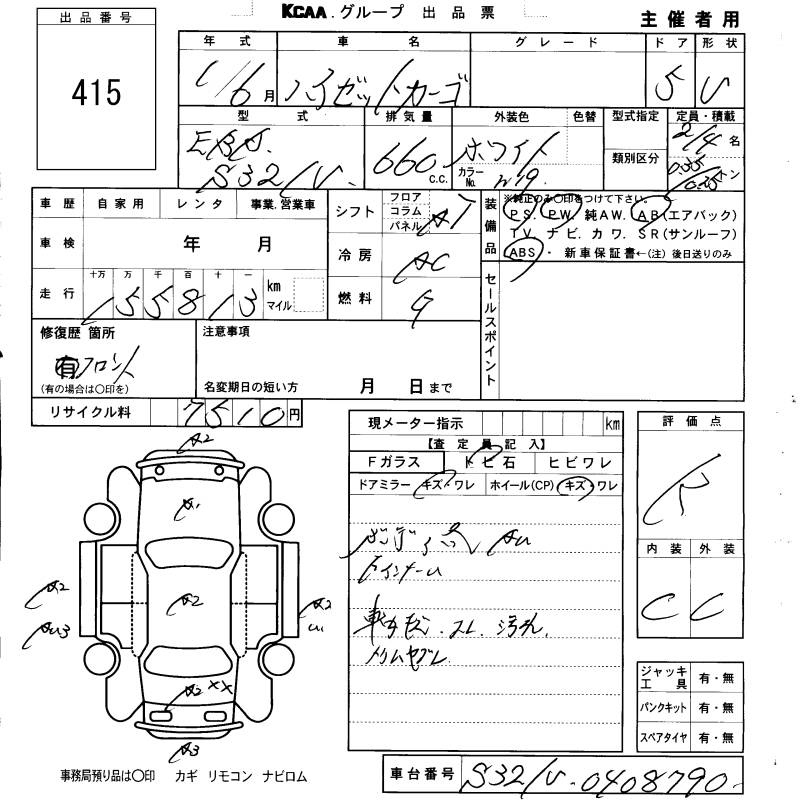 KCAA.グループ 出品票
主催者用
出品番号
415
年式 車名 グレード ドア 形状
6月 ハイゼットカーゴ 5 V
型式 排気量 外装色 色替 型式指定 定員・積載
EBD. 660 c.c. ホワイト 2/4 名
S321V. カラーNo. W19. 類別区分 0.35/0.25 トン
車歴 自家用 レンタ 事業.営業車
車検 年 月
走行 十万 万 千 百 十 一
155813 km マイル
シフト フロア コラム パネル AT
冷房 AC
燃料 G
装備品 ※純正のみ○印をつけて下さい。
PS. PW. 純AW. AB(エアバック)
TV. ナビ. カワ. SR(サンルーフ)
ABS・ 新車保証書←(注)後日送りのみ
セールスポイント
修復歴 箇所
有 フロント
(有の場合は○印を)
注意事項
名変期日の短い方 月 日まで
リサイクル料 7510円
現メーター指示 km
【査定員記入】
Fガラス トビ石 ヒビワレ
ドアミラー キズ・ワレ ホイール(CP) キズ・ワレ
評価点
R
内装 外装
C C
A2
A1
A2
A2
AU3
A2
U1
A2 XX
A3
ジャッキ工具 有・無
パンクキット 有・無
スペアタイヤ 有・無
事務局預り品は○印 カギ リモコン ナビロム
車台番号 S321V-0408790